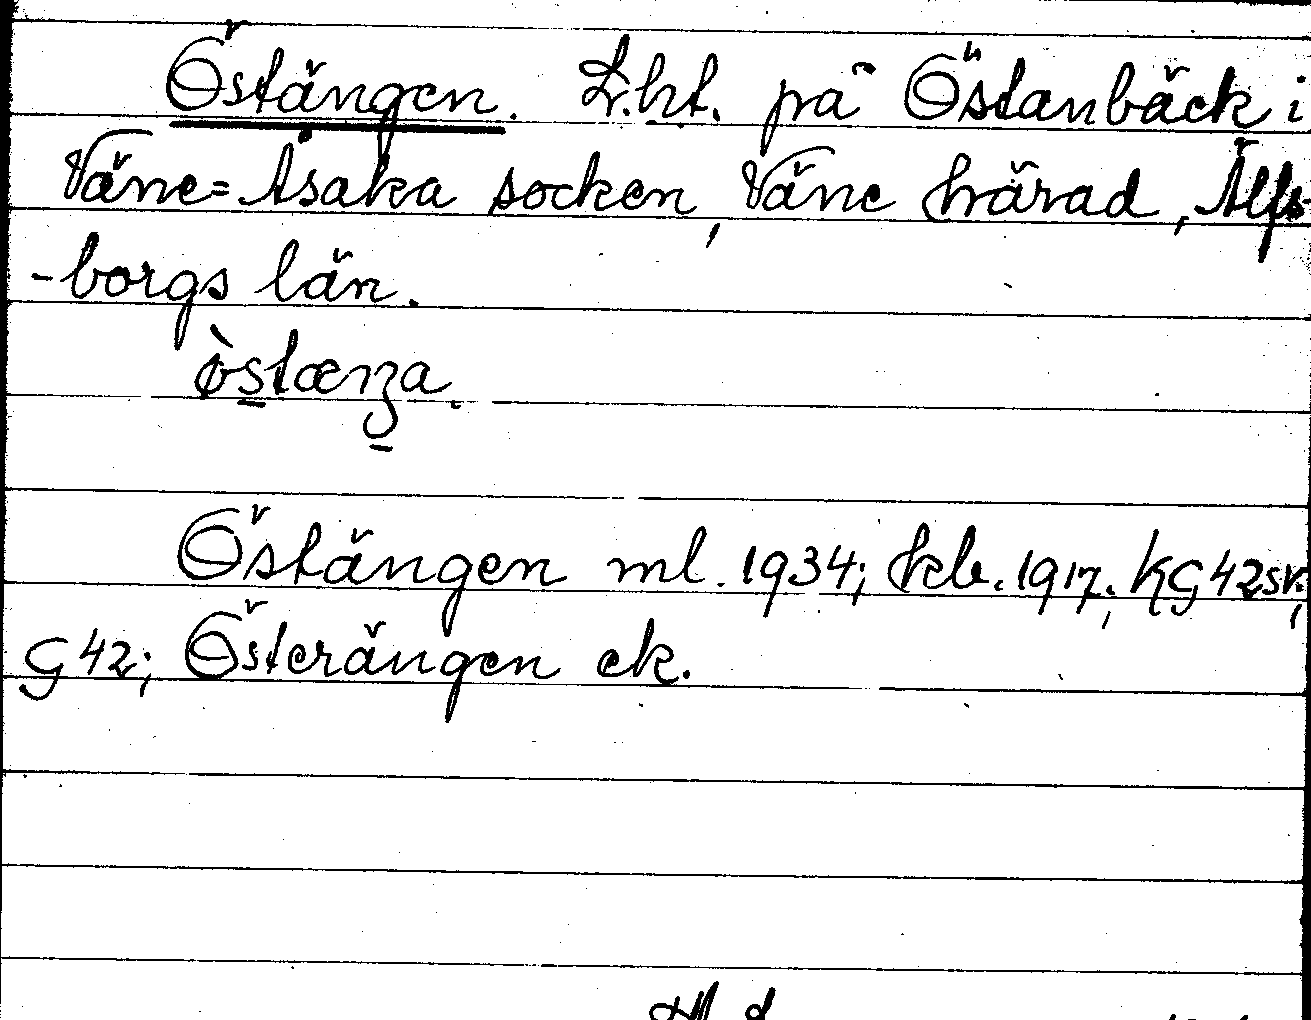 Östängen. L.ht. på Östanbäck i
Väne=Åsaka socken, Väne härad, Älfs-
-borgs län.
ò̀stænga.
Östängen ml. 1934; kb. 1917; KG42sv;
G42; Österängen ek.